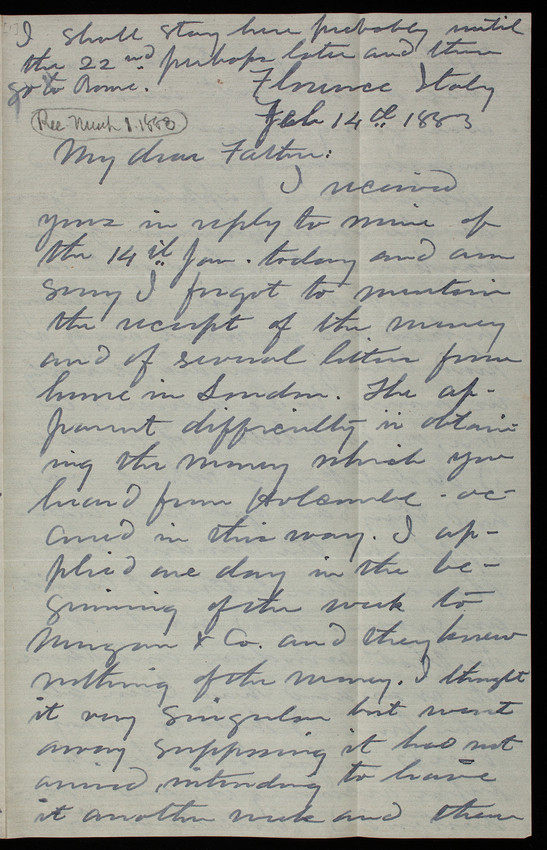 I shall stay here probably until
the 22nd perhaps later and then
go to Rome.
Florence Italy
Feb 14th 1883
Rec. March 1. 1883
My dear Father:
I received
yours in reply to mine of
the 14th Jan. today and am
sorry I forgot to mention
the receipt of the money
and of several letters from
home in London. The ap-
parent difficulty in obtain-
ing the money which you
heard from Holcombe - oc-
cured in this way. I ap-
plied one day in the be-
ginning of the week to
Morgan & Co. and they knew
nothing of the money. I thought
it very singular but went
away supposing it had not
arrived, intending to leave
it another week and then